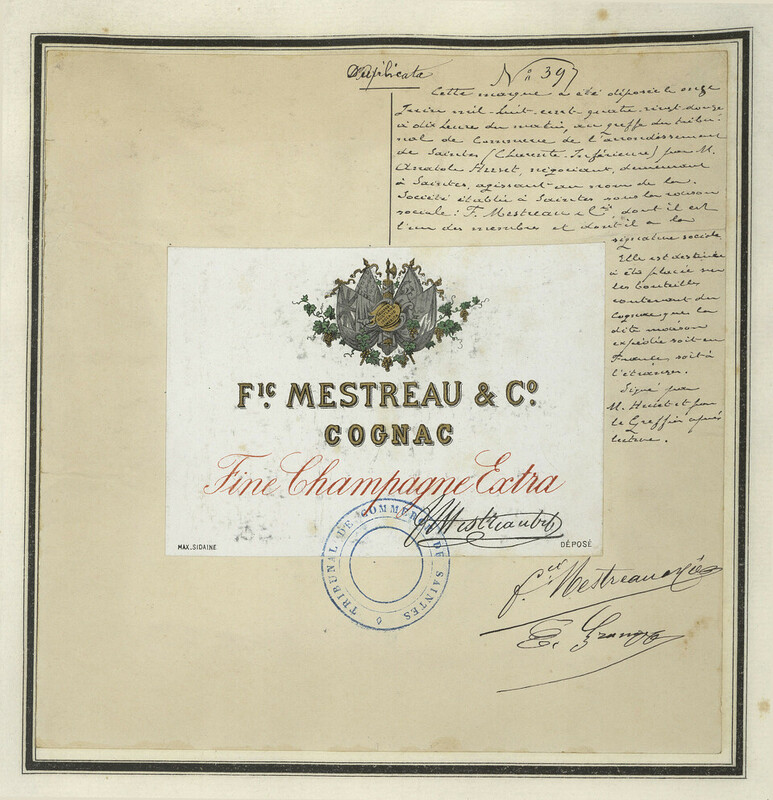 Duplicata
No 397
Cette marque a été déposée le onze
Juin mil-huit-cent-quatre-vingt-douze
à dix heure du matin, au greffe du tribu-
nal de Commerce de l'arrondissement
de Saintes (Charente-Inférieure) par M.
Anatole Huvet, négociant, demeurant
à Saintes, agissant au nom de la
Société établie à Saintes sous la raison
sociale: F. Mestreau & Cie, dont il est
l'un des membres et dont il a la
signature sociale
Elle est destinée
à été placée sur
les bouteilles
contenant du
Cognac que la
dite maison
expédie soit en
France, soit à
l'étranger.
Signé par
M. Huvet et par
le Greffier après
lecture.
FIC. MESTREAU & CO.
COGNAC
Fine Champagne Extra
F Mestreau & Cie
MAX. SIDAINE
DÉPOSÉ
TRIBUNAL DE COMMERCE DE SAINTES
F.ic Mestreau & Cie
E.